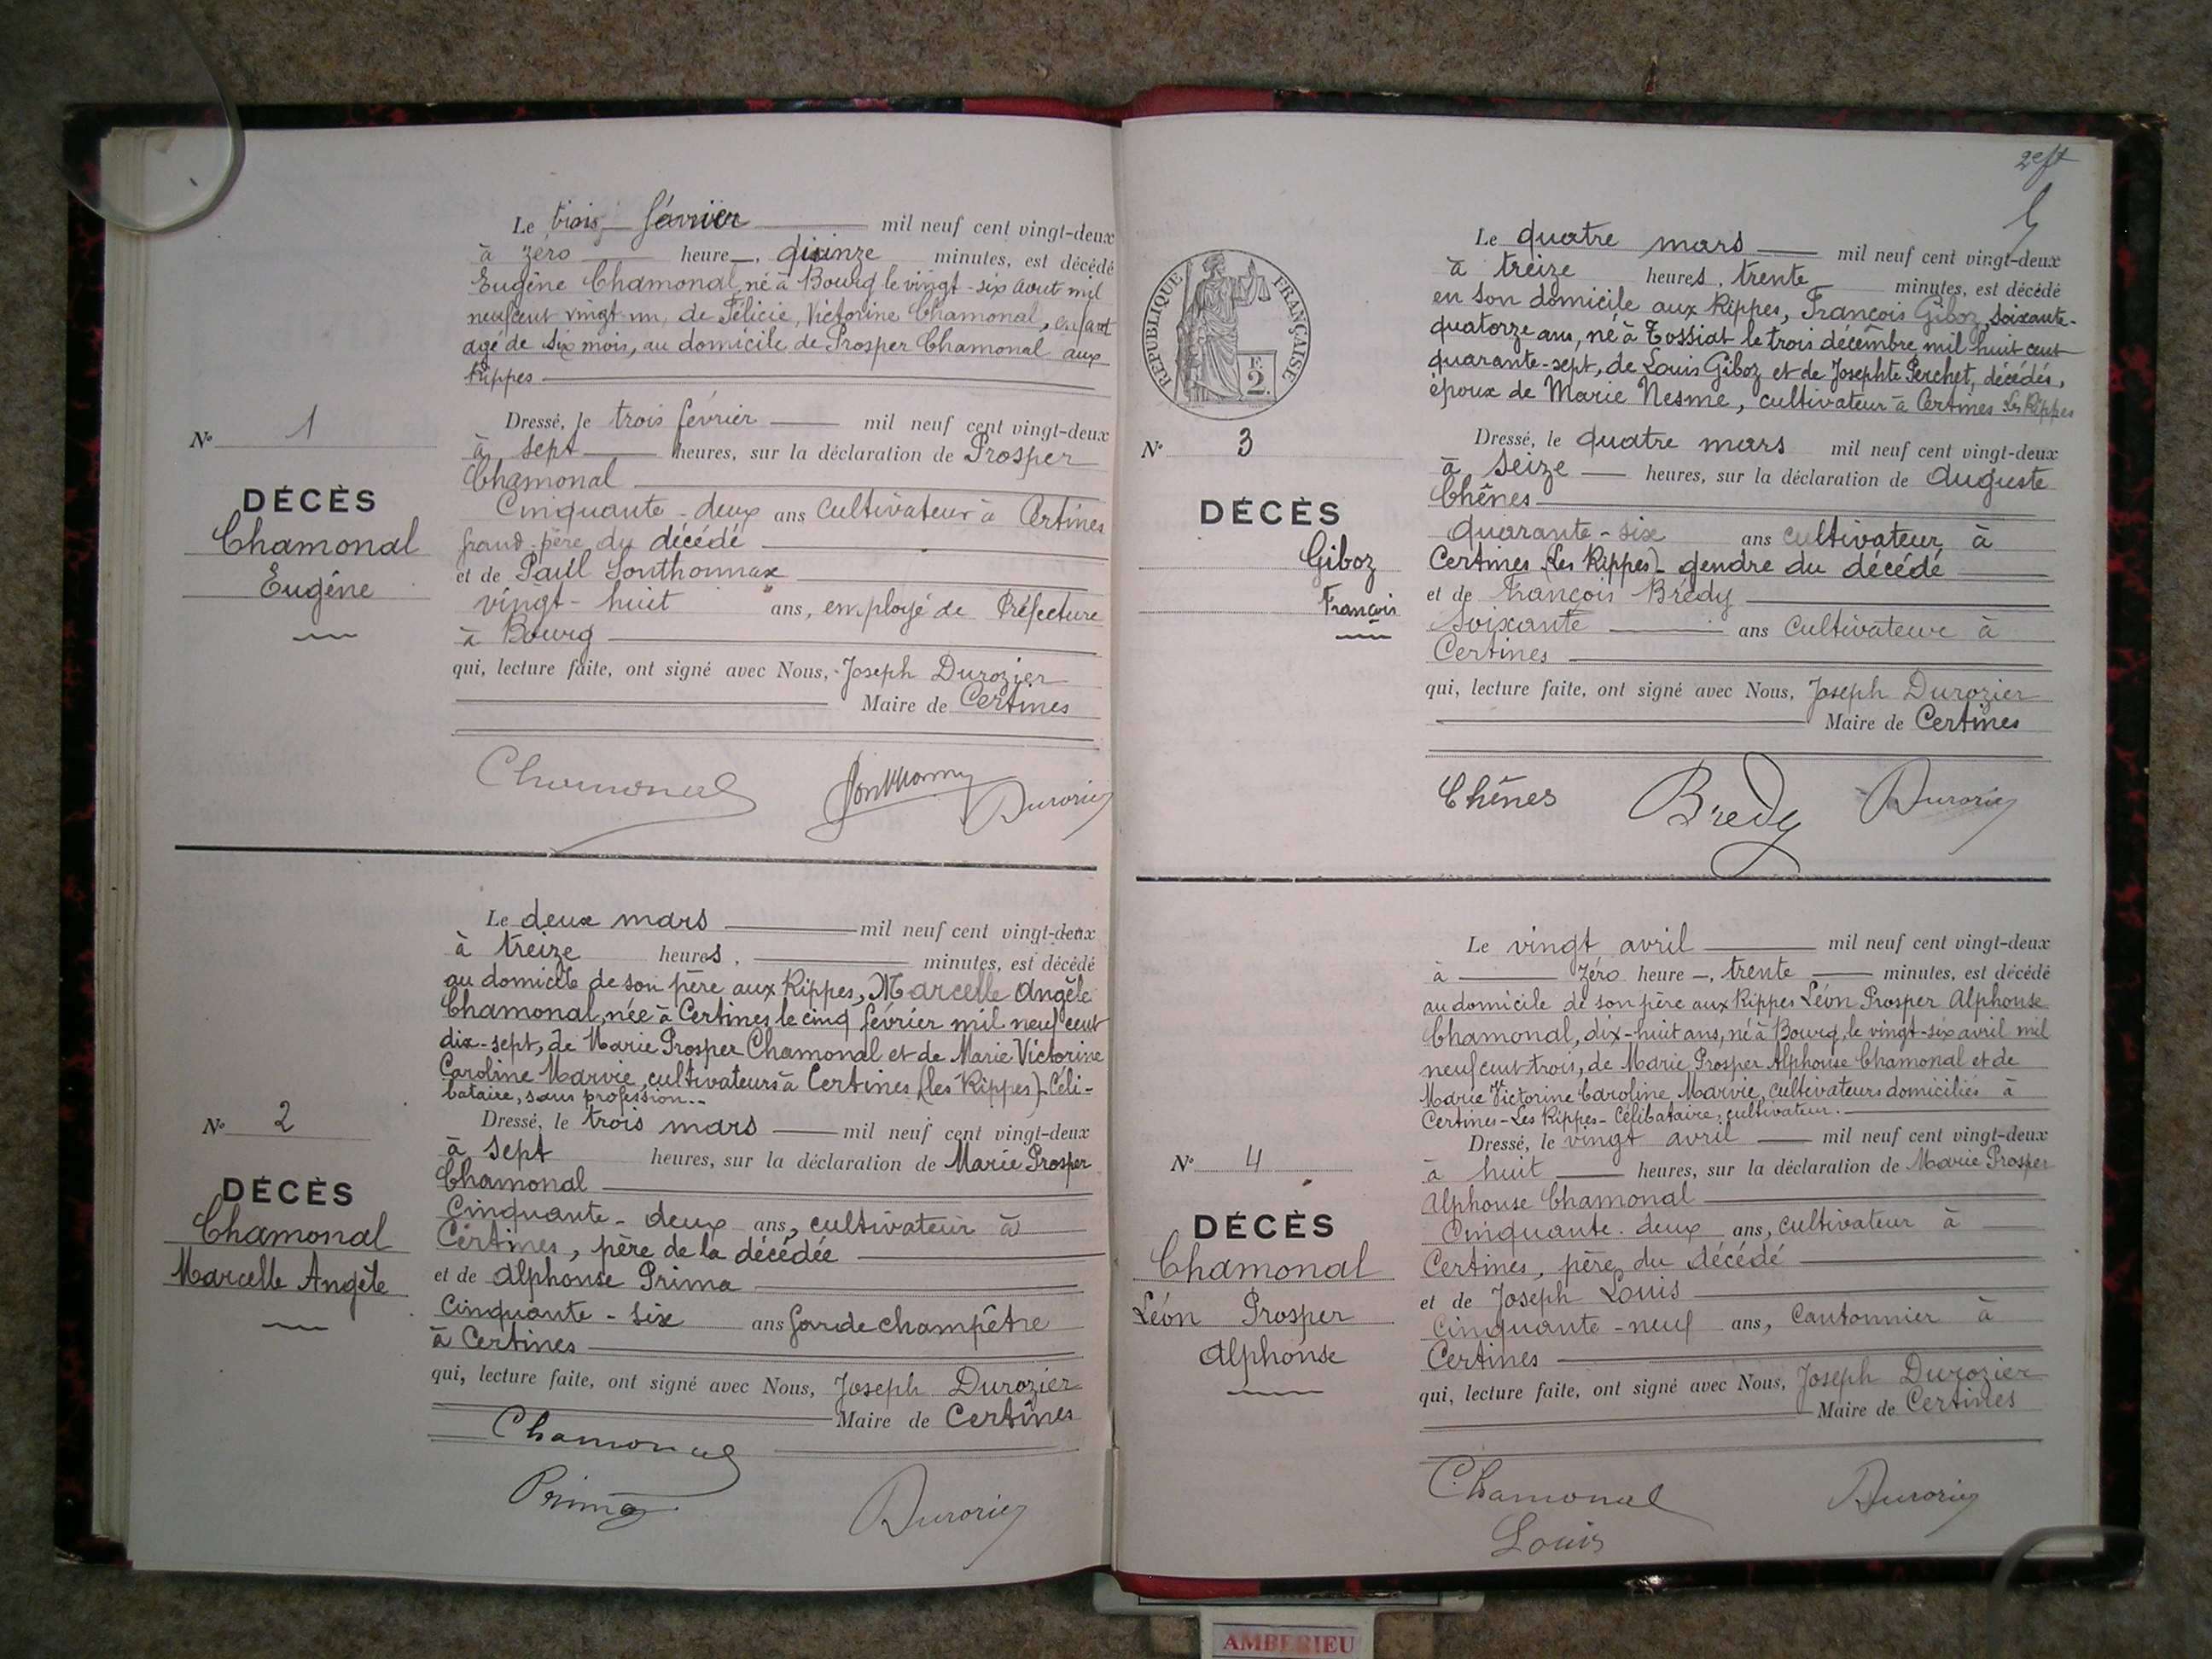 Le trois février mil neuf cent vingt-deux
à zéro heure, quinze minutes, est décédé
Eugène Chamonal, né à Bourg le vingt-six aout mil
neuf cent vingt-un, de Félicie, Victorine Chamonal, enfant
agé de six mois, au domicile de Prosper Chamonal aux
Rippes
Dressé, le trois février mil neuf cent vingt-deux
à sept heures, sur la déclaration de Prosper
Chamonal
Cinquante-deux ans cultivateur à Certines
grand-père du décédé
et de Paul Sonthonnax
vingt-huit ans, employé de Préfecture
à Bourg
qui, lecture faite, ont signé avec Nous, Joseph Durozier
Maire de Certines
N° 1
DÉCÈS
Chamonal
Eugène
Chamonal Durozier
Le deux mars mil neuf cent vingt-deux
à treize heures, minutes, est décédé
au domicile de son père aux Rippes, Marcelle Angèle
Chamonal, née à Certines le cinq février mil neuf cent
dix-sept, de Marie Prosper Chamonal et de Marie Victorine
Caroline Marvie, cultivateurs à Certines (les Rippes) - Céli-
bataire, sans profession.
Dressé, le trois mars mil neuf cent vingt-deux
à sept heures, sur la déclaration de Marie Prosper
Chamonal
Cinquante-deux ans, cultivateur à
Certines, père de la décédée
et de Alphonse Prima
Cinquante-six ans garde champêtre
à Certines
qui, lecture faite, ont signé avec Nous, Joseph Durozier
Maire de Certines
N° 2
DÉCÈS
Chamonal
Marcelle Angèle
Chamonal
Prima Durozier
2eft
RÉPUBLIQUE FRANÇAISE
2
F.
Le quatre mars mil neuf cent vingt-deux
à treize heures, trente minutes, est décédé
en son domicile aux Rippes, François Giboz, soixante-
quatorze ans, né à Tossiat le trois décembre mil huit cent
quarante-sept, de Louis Giboz et de Josephte Perchet, décédés,
époux de Marie Nesme, cultivateur à Certines Les Rippes
Dressé, le quatre mars mil neuf cent vingt-deux
à seize heures, sur la déclaration de Auguste
Chênes
quarante-six ans cultivateur à
Certines (Les Rippes) - gendre du décédé
et de François Brédy
Soixante ans Cultivateur à
Certines
qui, lecture faite, ont signé avec Nous, Joseph Durozier
Maire de Certines
N° 3
DÉCÈS
Giboz
François
Chênes Bredy Durozier
Le vingt avril mil neuf cent vingt-deux
à Zéro heure, trente minutes, est décédé
au domicile de son père aux Rippes Léon Prosper Alphonse
Chamonal, dix-huit ans, né à Bourg, le vingt-six avril mil
neuf cent trois, de Marie Prosper Alphonse Chamonal et de
Marie Victorine Caroline Marvie, cultivateurs domiciliés à
Certines - Les Rippes - Célibataire, cultivateur.
Dressé, le vingt avril mil neuf cent vingt-deux
à huit heures, sur la déclaration de Marie Prosper
Alphonse Chamonal
Cinquante-deux ans, cultivateur à
Certines, père du décédé
et de Joseph Louis
Cinquante-neuf ans, Cantonnier à
Certines
qui, lecture faite, ont signé avec Nous, Joseph Durozier
Maire de Certines
N° 4
DÉCÈS
Chamonal
Léon Prosper
Alphonse
Chamonal Durozier
Louis
AMBERIEU